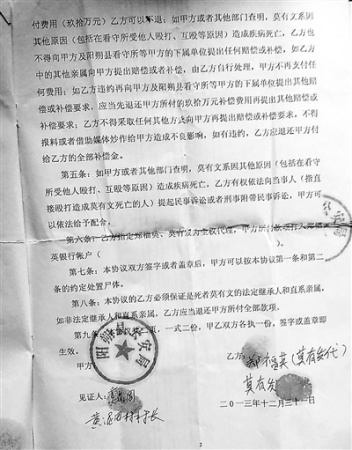 付费用（玖拾万元）乙方可以不退；如甲方或者其他部门查明，莫有文系因
其他原因（包括在看守所受他人殴打、互殴等原因）造成疾病死亡，乙方也
不得向甲方及阳朔县看守所等甲方的下属单位提出任何赔偿或补偿，如乙方
中的其他亲属向甲方提出赔偿或者补偿，由乙方自行处理，甲方不再支付任
何费用；如乙方违约再向甲方及阳朔县看守所等甲方的下属单位提出其他赔
偿或补偿要求，应当先退还甲方所付的玖拾万元补偿费用再提出其他赔偿或
补偿要求；乙方不得采取任何其他方式向甲方再提出赔偿或补偿要求，不得
报料或者借助媒体炒作给甲方造成不良影响，如有违约，乙方应退还甲方付
给乙方的全部补偿金。
第五条：如甲方或者其他部门查明，莫有文系因其他原因（包括在看守
所受他人殴打、互殴等原因）造成疾病死亡，乙方有权依法向当事人（指直
接殴打造成莫有文死亡的人）提起民事诉讼或者刑事附带民事诉讼，甲方可
以依法给予配合。
第六条：乙方指定郑福英、莫有发为全权代理，甲方所付款项打入郑福
英银行帐户（ ）。
第七条：本协议双方签字或者盖章后，可以按本协议第一条和第二
条的约定处置尸体。
第八条：本协议的乙方必须保证是死者莫有文的法定继承人和直系亲属，
如非法定继承人和直系亲属，乙方应当退还甲方所付全部款项。
第九条：本协议共二页，一式二份，甲乙双方各执一份，签字或盖章即
生效。
甲方
乙方：郑福英（莫有发代）
莫有发
见证人：
村长
二〇一三年十二月三十一日
2